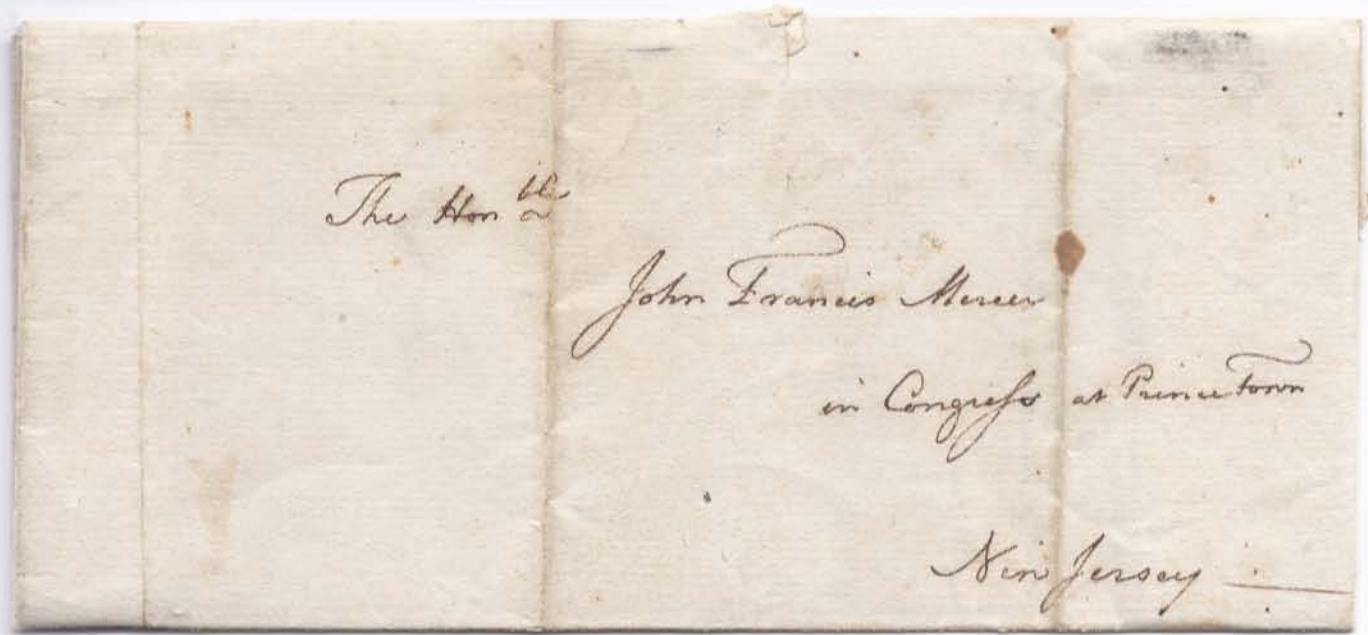 The Honble
John Francis Mercer
in Congress at Prince Town
New Jersey